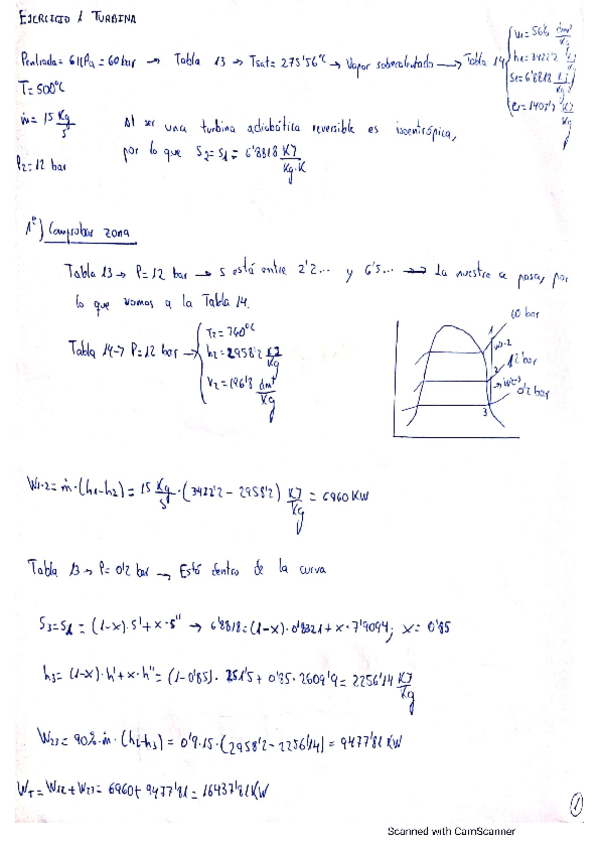 EJERCICIO 1 TURBINA
Pentrada = 6MPa = 60 bar → Tabla 13 → Tsat = 275'56°C → Vapor sobrecalentado → Tabla 14 { v1 = 56'6 dm³/Kg
h1 = 3422'2 KJ/Kg
S1 = 6'8818 KJ/Kg
T = 500°C
ṁ = 15 Kg/s
Al ser una turbina adiabática reversible es isoentrópica,
por lo que S2 = S1 = 6'8818 KJ/Kg·K
P2 = 12 bar
1º) Comprobar zona
Tabla 13 → P = 12 bar → s está entre 2'2... y 6'5... → La nuestra se pasa, por
lo que vamos a la Tabla 14.
Tabla 14 → P = 12 bar → { T2 = 260°C
h2 = 2958'2 KJ/Kg
v2 = 196'3 dm³/Kg
1
60 bar
W1-2
2
12 bar
W2-3
0'2 bar
3
W1-2 = ṁ·(h1-h2) = 15 Kg/s · (3422'2 - 2958'2) KJ/Kg = 6960 KW
Tabla 13 → P = 0'2 bar → Está dentro de la curva
S3 = S1 = (1-x)·s' + x·s'' → 6'8818 = (1-x)·0'8321 + x·7'9094; x = 0'85
h3 = (1-x)·h' + x·h'' = (1-0'85)·251'5 + 0'85·2609'9 = 2256'14 KJ/Kg
W23 = 90%·ṁ·(h2-h3) = 0'9·15·(2958'2 - 2256'14) = 9477'81 KW
WT = W12 + W23 = 6960 + 9477'81 = 16437'81 KW
1
Scanned with CamScanner